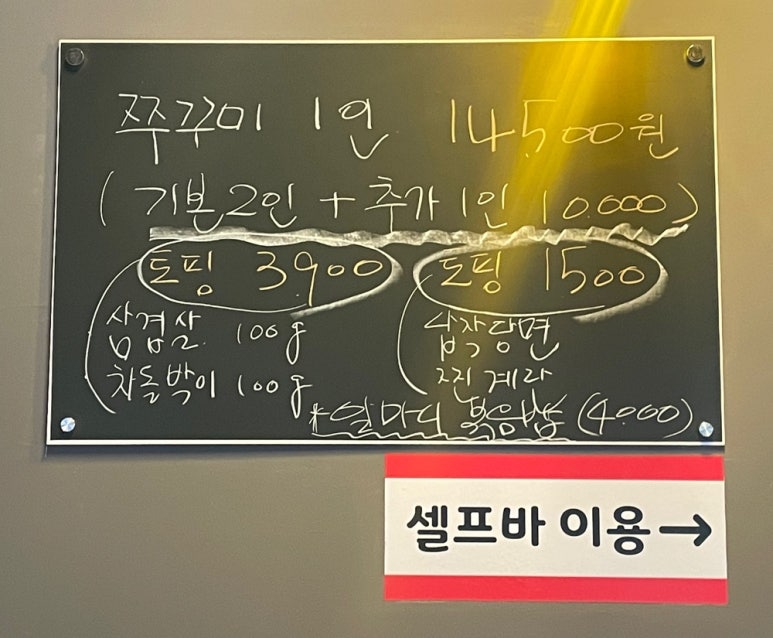 쭈꾸미 1인 14,500원
(기본2인 + 추가 1인 10.000)
토핑 3,900 토핑 1500
삼겹살 100g 납작당면
차돌박이 100g 찐계란
볶음밥 (4.000)
셀프바 이용→